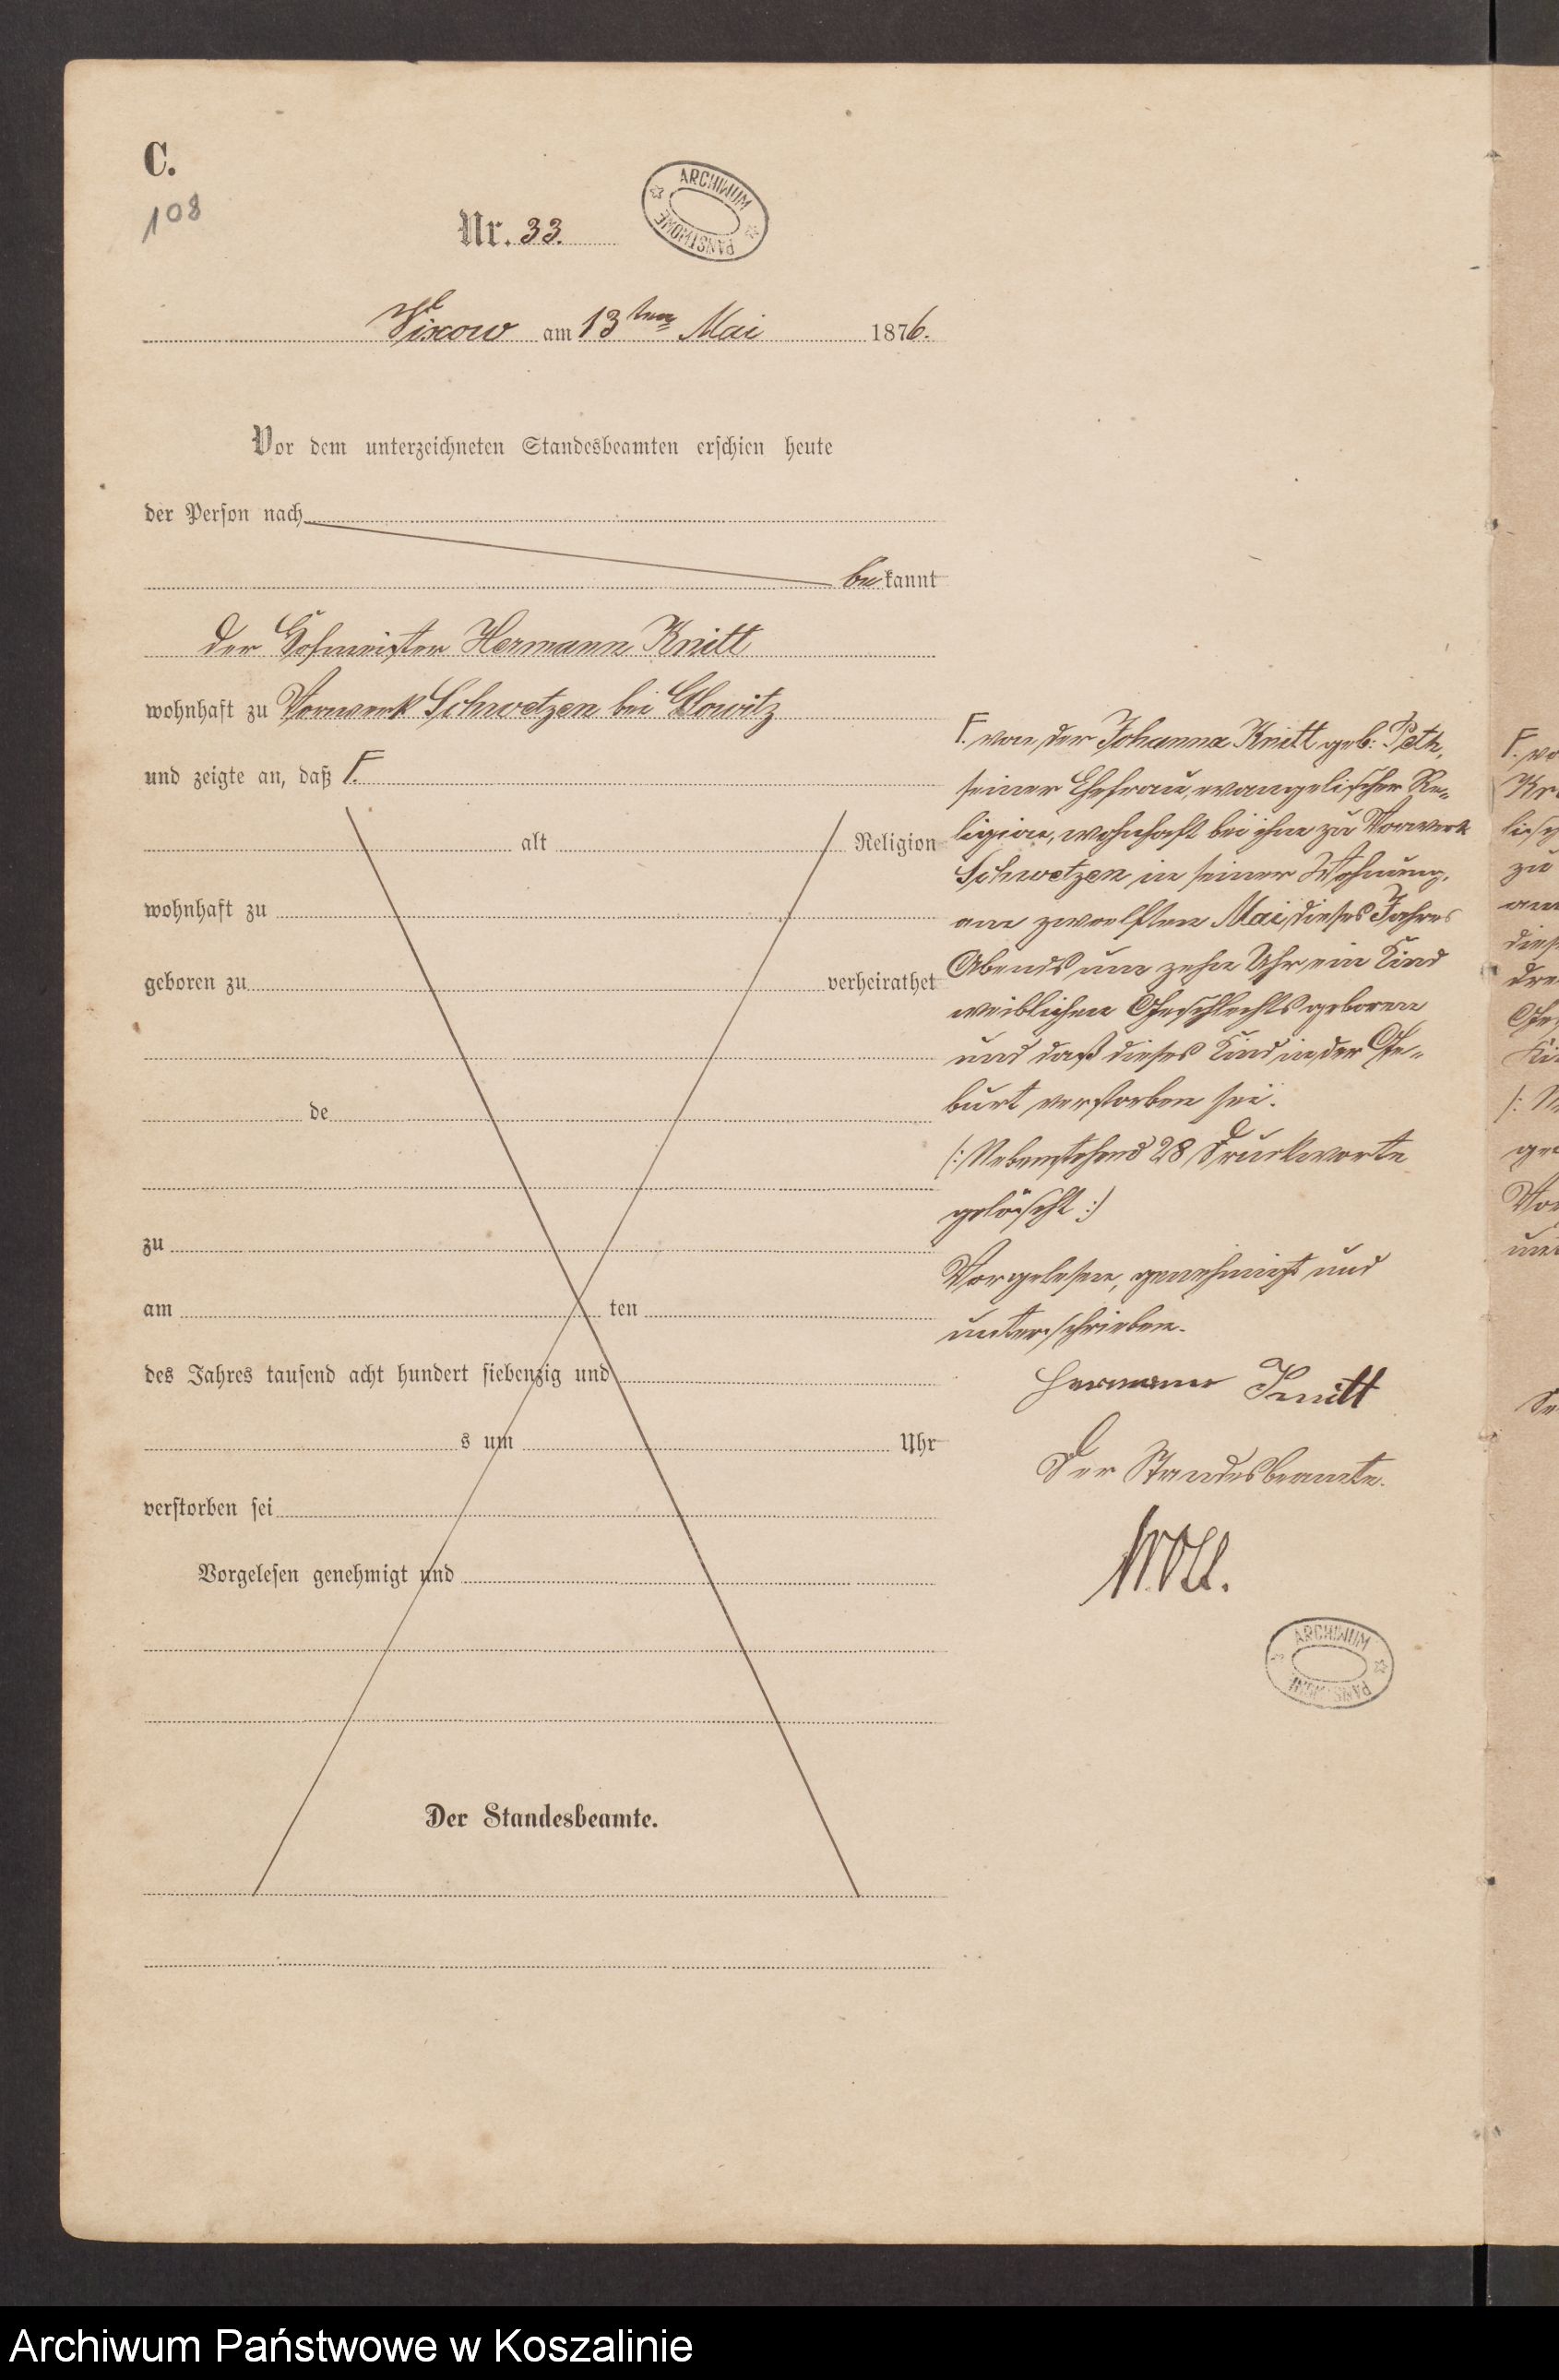 C.
108
Nr. 33.
ARCHIWUM PAŃSTWOWE
Vixow am 13ten Mai 1876.
Vor dem unterzeichneten Standesbeamten erschien heute
der Person nach
bekannt
der Hofmeister Hermann Knitt
wohnhaft zu Vorwerk Schwetzen bei Glowitz
und zeigte an, daß F.
alt Religion
wohnhaft zu
geboren zu verheirathet
de
zu
am ten
des Jahres tausend acht hundert siebenzig und
s um Uhr
verstorben sei
Vorgelesen genehmigt und
Der Standesbeamte.
F. von der Johanna Knitt geb: Peth,
seiner Ehefrau, evangelischer Re-
ligion, wohnhaft bei ihm zu Vorwerk
Schwetzen in seiner Wohnung,
am zwoelften Mai dieses Jahres
Abends um zehn Uhr ein Kind
weiblichen Geschlechts geboren
und daß dieses Kind in der Ge-
burt verstorben sei.
/: Nebenstehend 28 Druckworte
gelöscht :/
Vorgelesen, genehmigt und
unterschrieben.
Hermann Knitt
Der Standesbeamte.
ARCHIWUM PAŃSTWOWE
Archiwum Państwowe w Koszalinie